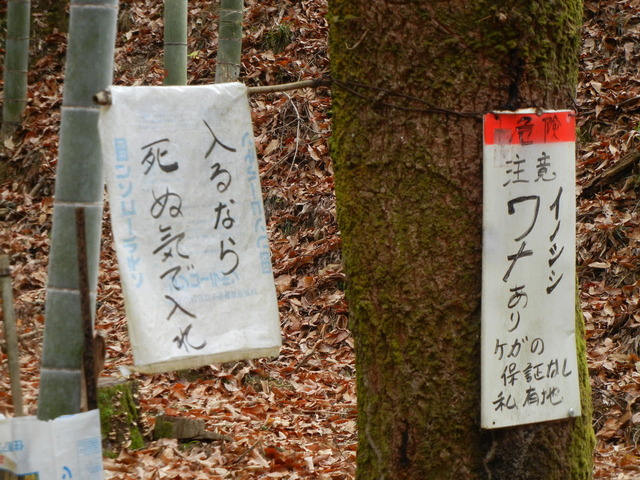 入るなら
死ぬ気で入れ
危険
注意
イノシシ
ワナあり
ケガの
保証なし
私有地